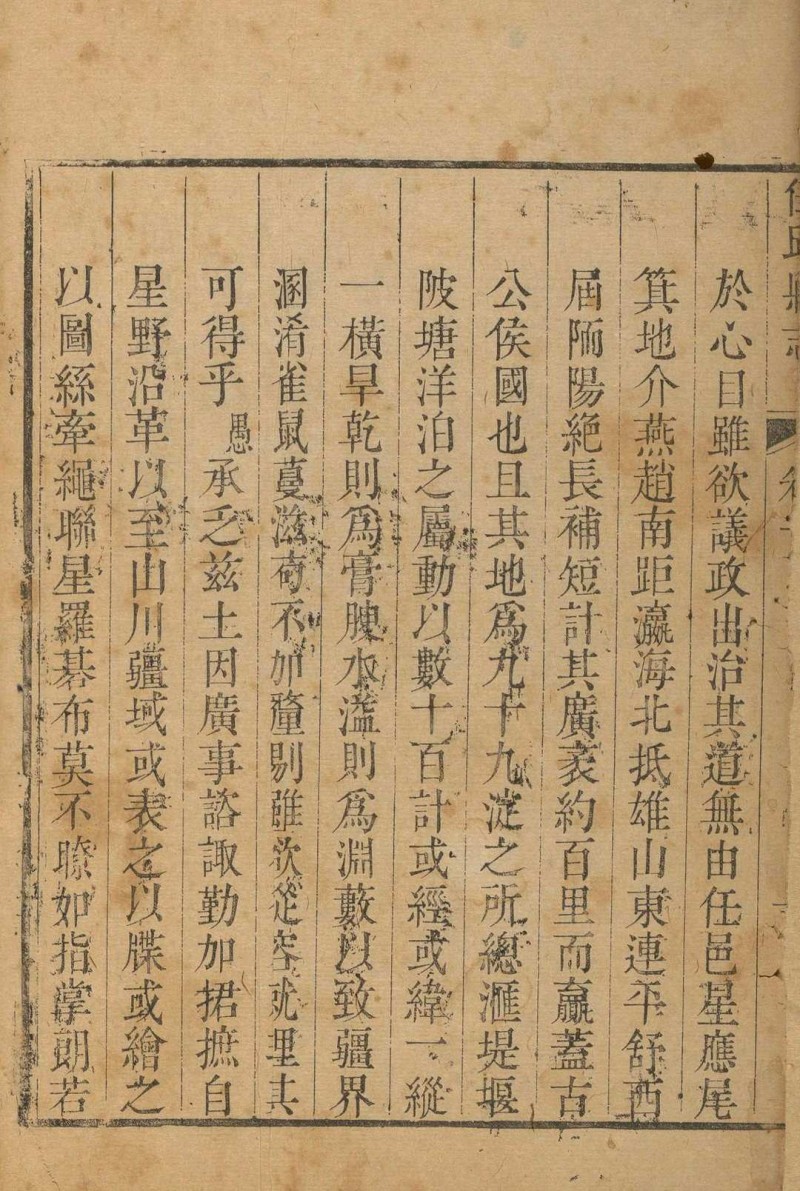 任邱縣志
於心曰雖欲議政出治其道無由任邑星應尾
箕地介燕趙南距瀛海北抵雄山東連平舒西
屆陑陽絕長補短計其廣袤約百里而羸蓋古
公侯國也且其地爲九十九淀之所總滙堤堰
陂塘洋泊之屬動以數十百計或經或緯一縱
一橫旱乾則爲膏腴水溢則爲淵藪以致疆界
溷淆雀鼠蔓滋苟不加釐剔雖欲從容就理其
可得乎愚承乏茲土因廣事諮諏勤加捃摭自
星野沿革以至山川疆域或表之以牒或繪之
以圖絲牽繩聯星羅碁布莫不瞭如指掌朗若